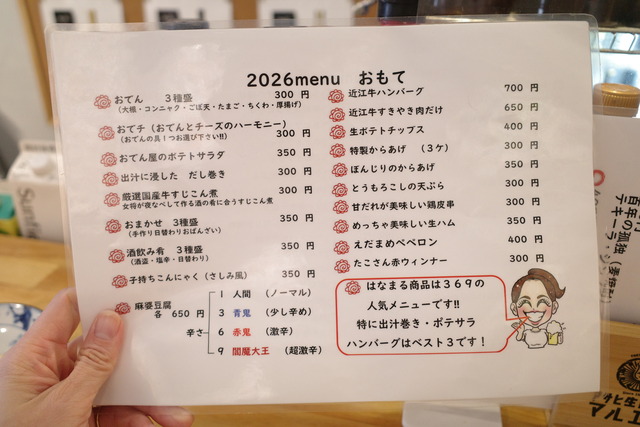 2026menu おもて
おでん 3種盛 300 円
(大根・コンニャク・ごぼ天・たまご・ちくわ・厚揚げ)
おでチ (おでんとチーズのハーモニー)
(おでんの具1つお選び下さい!!) 300 円
おでん屋のポテトサラダ 350 円
出汁に浸した だし巻き 300 円
厳選国産牛すじこん煮 300 円
女将が夜なべして作る酒の肴に合うすじこん煮
おまかせ 3種盛 350 円
(手作り日替わりおばんざい)
酒飲み肴 3種盛 350 円
(酒盗・塩辛・日替わり)
子持ちこんにゃく (さしみ風) 350 円
麻婆豆腐
各 650 円
辛さ
1 人間 (ノーマル)
3 青鬼 (少し辛め)
6 赤鬼 (激辛)
9 閻魔大王 (超激辛)
近江牛ハンバーグ 700 円
近江牛すきやき肉だけ 650 円
生ポテトチップス 400 円
特製からあげ (3ケ) 300 円
ぼんじりのからあげ 350 円
とうもろこしの天ぷら 300 円
甘だれが美味しい鶏皮串 300 円
めっちゃ美味しい生ハム 350 円
えだまめペペロン 400 円
たこさん赤ウィンナー 300 円
はなまる商品は369の
人気メニューです!!
特に出汁巻き・ポテサラ
ハンバーグはベスト3です!